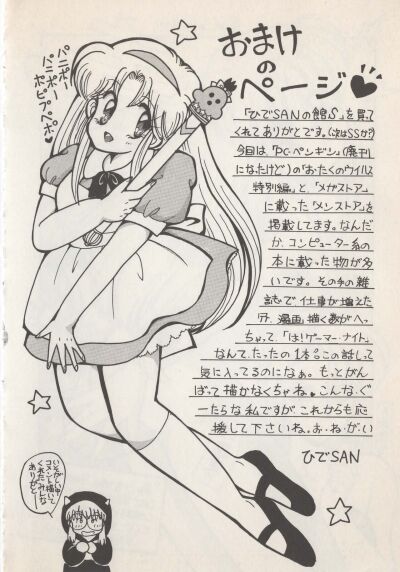 おまけ
の
ページ♥
パニポー
パニポー
ポピプペポ♥
「ひでSANの館S」を買って
くれてありがとです。(次はSSか?)
今回は、「PC・ペンギン」(廃刊
になったけど)の「お・たくのウイルス
特別編」と、「メガストア」
に載った「メンストア」を
掲載してます。なんだ
か、コンピューター系の
本に載った物が多
いです。その手の雑
誌で仕事が増えた
分、漫画描く数がへっ
ちゃって「は!ゲーマー・ナイト」
なんて、たったの1本。この話して
気に入ってるのになぁ。もっとがん
ばって描かなくちゃね♥こんな、ぐ
ーたらな私ですが、これからも応
援して下さいね。お・ね・が・い
ひでSAN
いそがしい中
コメント描いて
くれたみんな
ありがとー